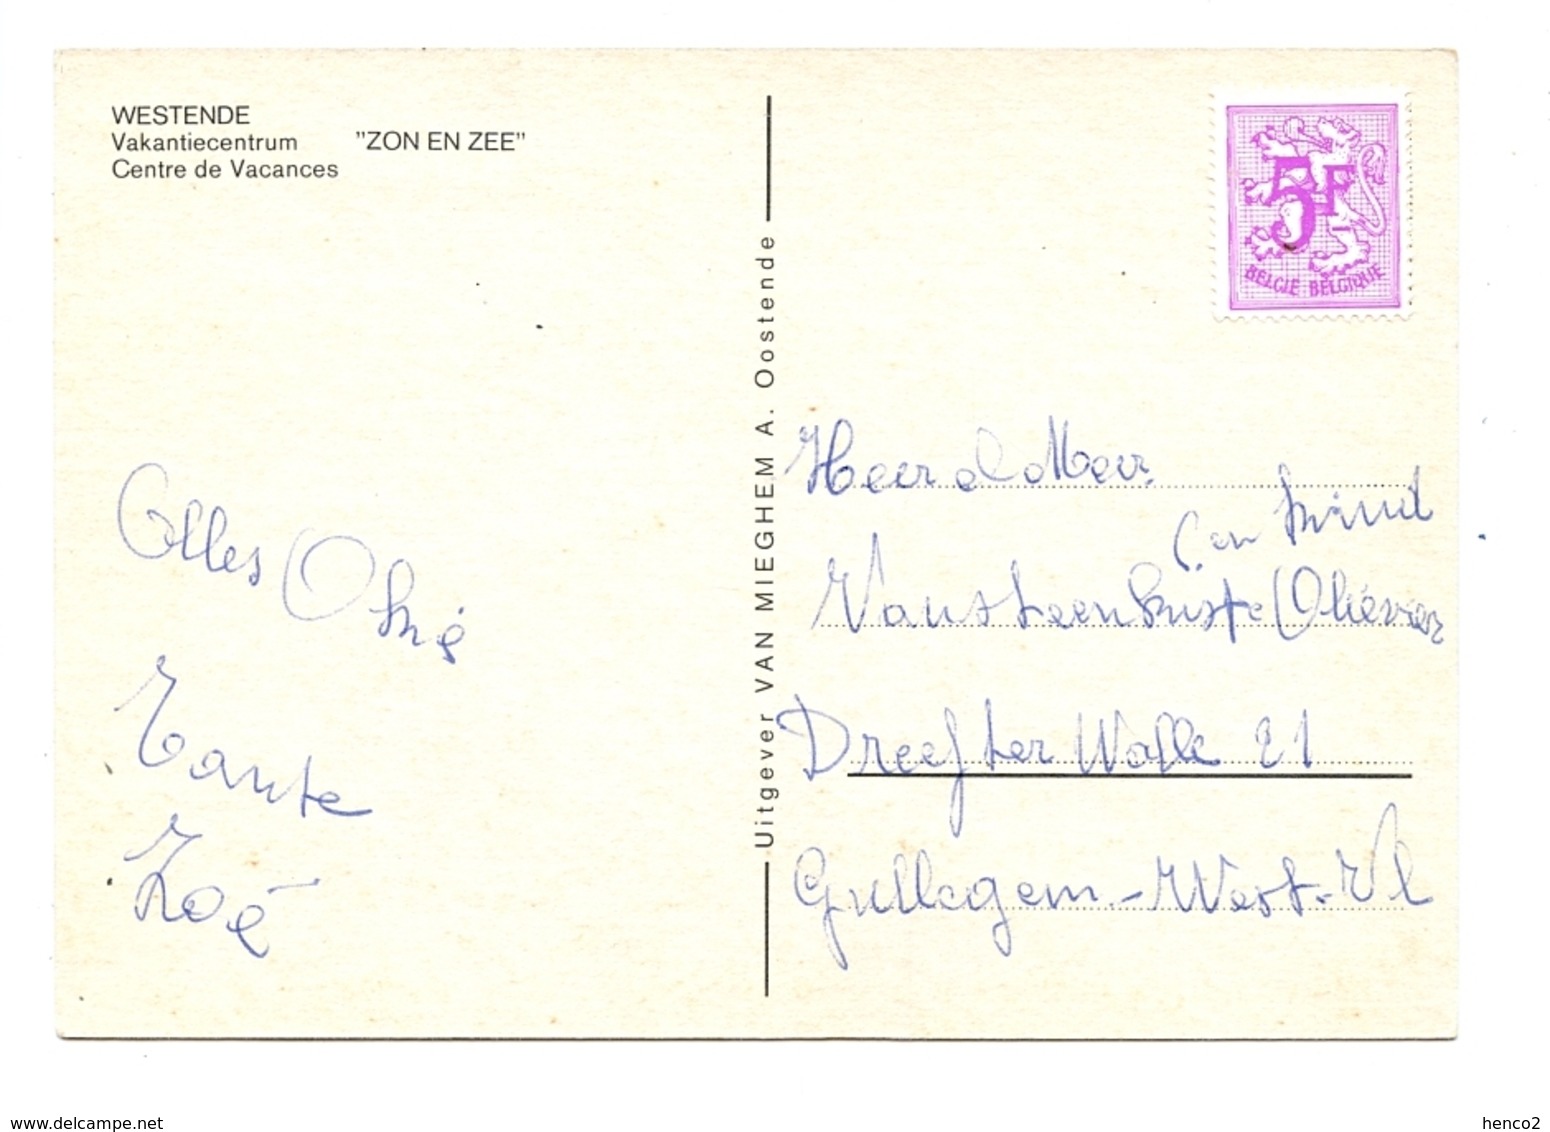 WESTENDE
Vakantiecentrum "ZON EN ZEE"
Centre de Vacances
Alles Oké
Tante
Zoé
Uitgever VAN MIEGHEM A. Oostende
5F
BELGIE BELGIQUE
Heer & Mevr.
(en kind
Vansteenkiste Olievier
Dreef ter Walle 21
Gullegem.-West.-Vl
www.delcampe.net
henco2